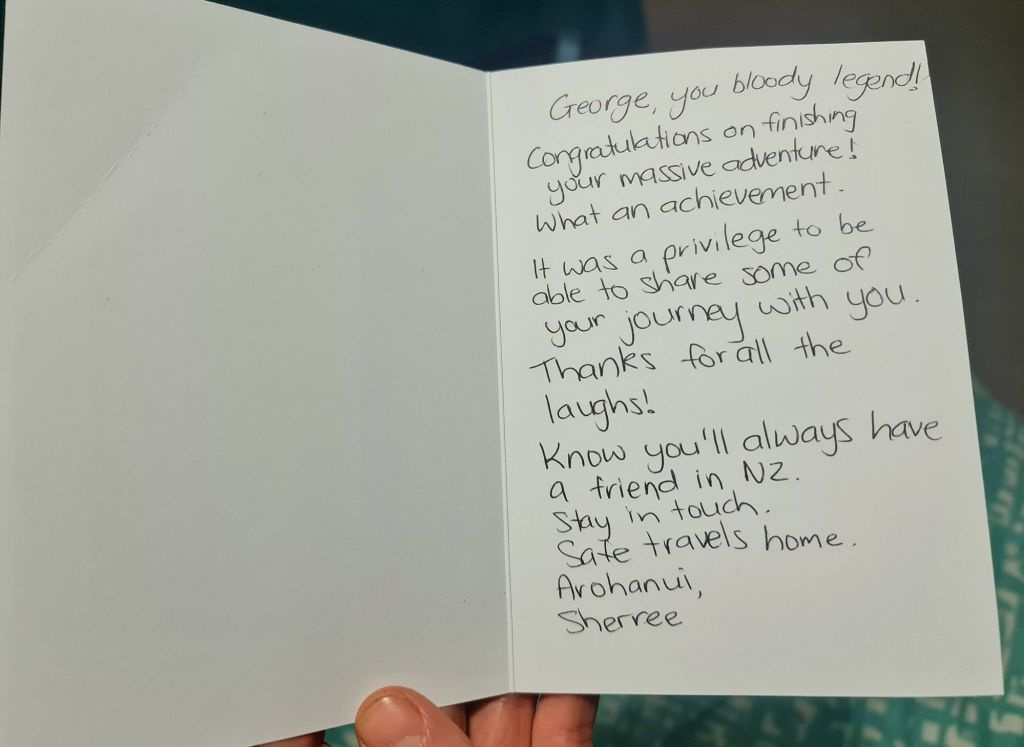 George, you bloody legend!
Congratulations on finishing
your massive adventure!
What an achievement.
It was a privilege to be
able to share some of
your journey with you.
Thanks for all the
laughs!
Know you'll always have
a friend in NZ.
Stay in touch.
Safe travels home.
Arohanui,
Sherree